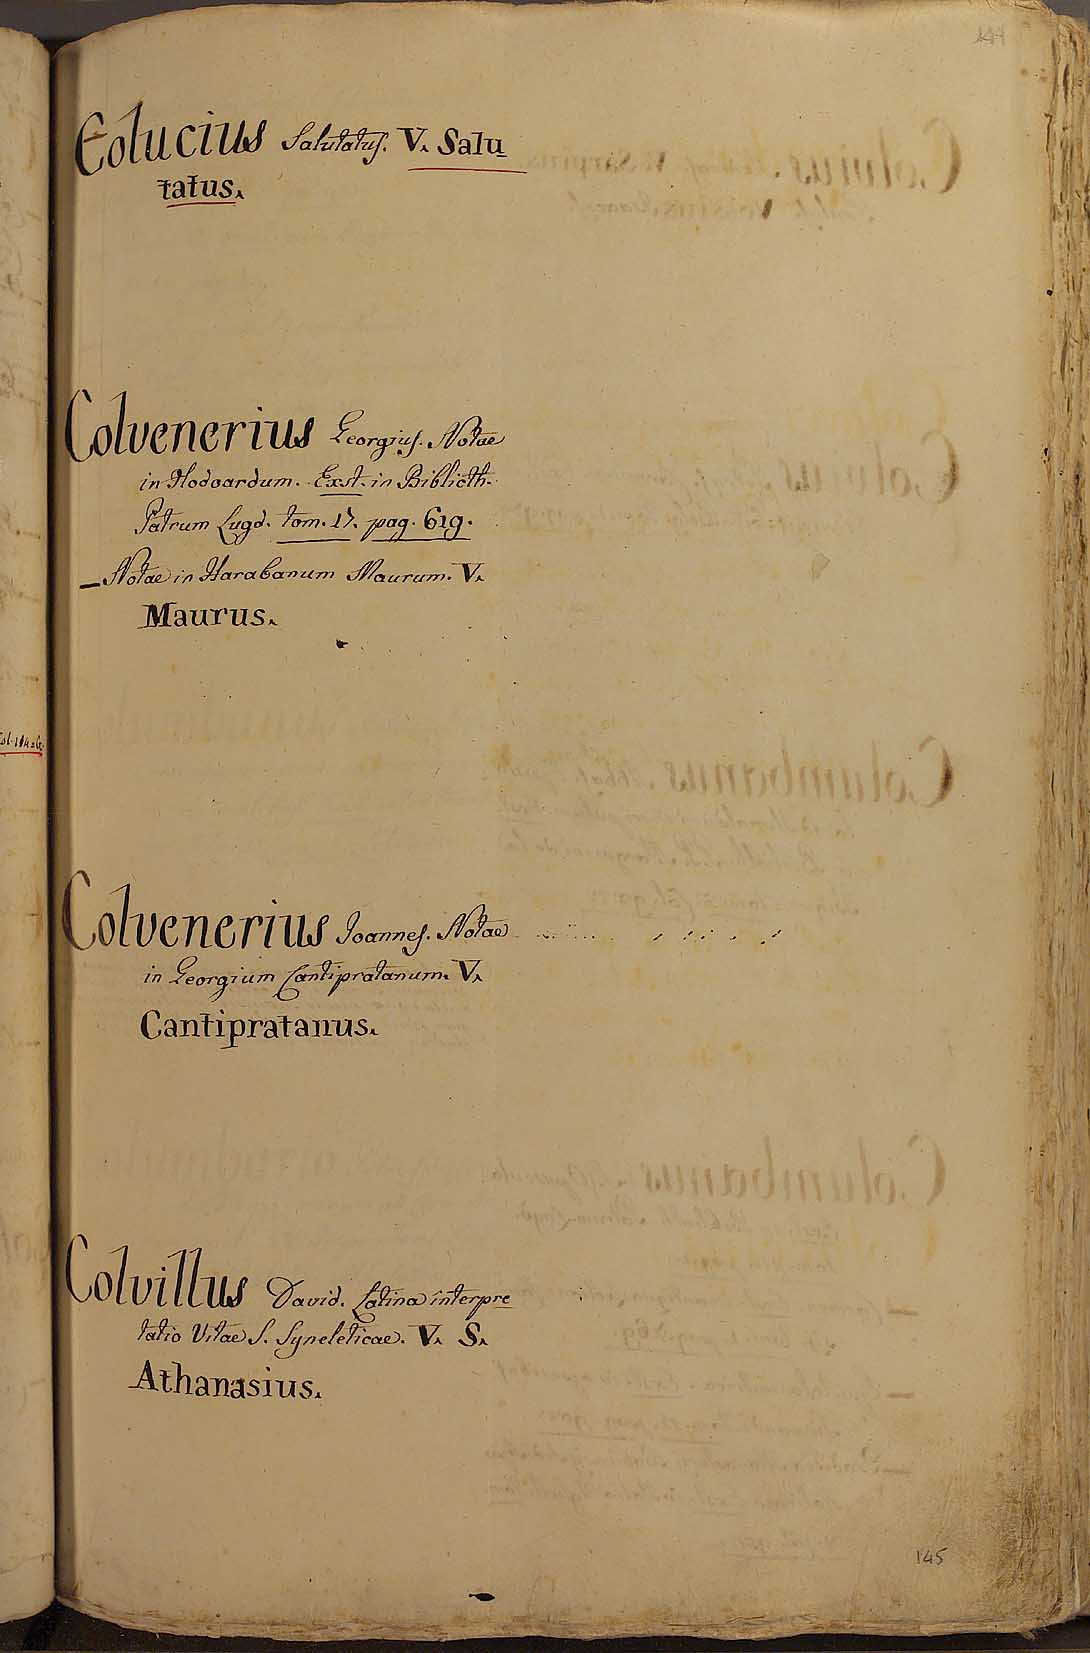 Colucius Salutatus. V. Salu
tatus.
Colvenerius Georgius. Notae
in Flodoardum. Exst. in Biblioth.
Patrum Lugd. tom. 17. pag. 619.
_ Notae in Harabanum Maurum. V.
Maurus.
Colvenerius Joannes. Notae
in Georgium Cantipratanum. V.
Cantipratanus.
Colvillus David. Latina interpre
tatio Vitae S. Syncleticae. V. S.
Athanasius.
145